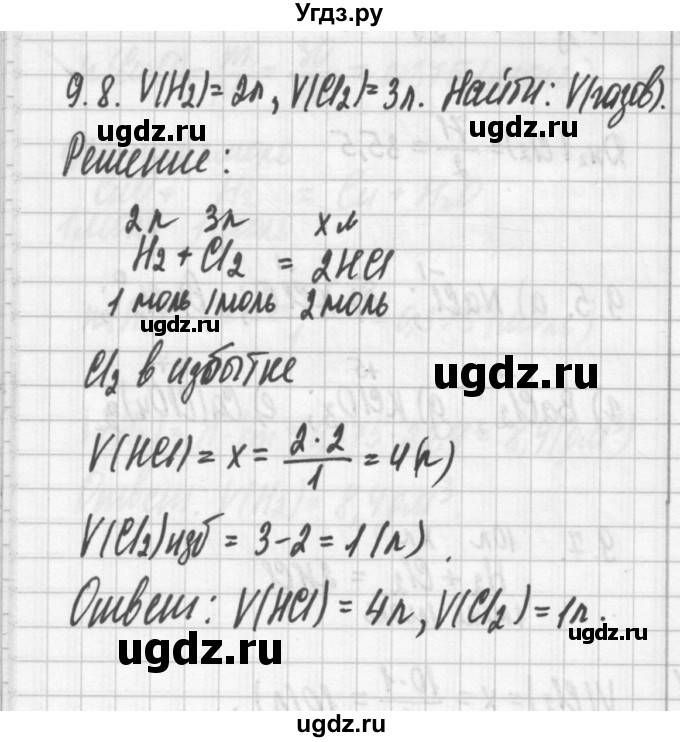 Угдз.ру
9.8. V(H₂)=2л, V(Cl₂)=3л. Найти: V(газов).
ugdz.ru ugdz.ru
Решение:
2л 3л x л
H₂ + Cl₂ = 2HCl
1 моль 1моль 2 моль
ugdz.ru
Cl₂ в избытке
ugdz.ru
V(HCl) = x = \frac{2·2}{1} = 4(л)
V(Cl₂)изб = 3-2 = 1(л).
Ответ: V(HCl) = 4л, V(Cl₂)=1л.
ugdz.ru
ugdz.ru ugdz.ru
ugdz.ru